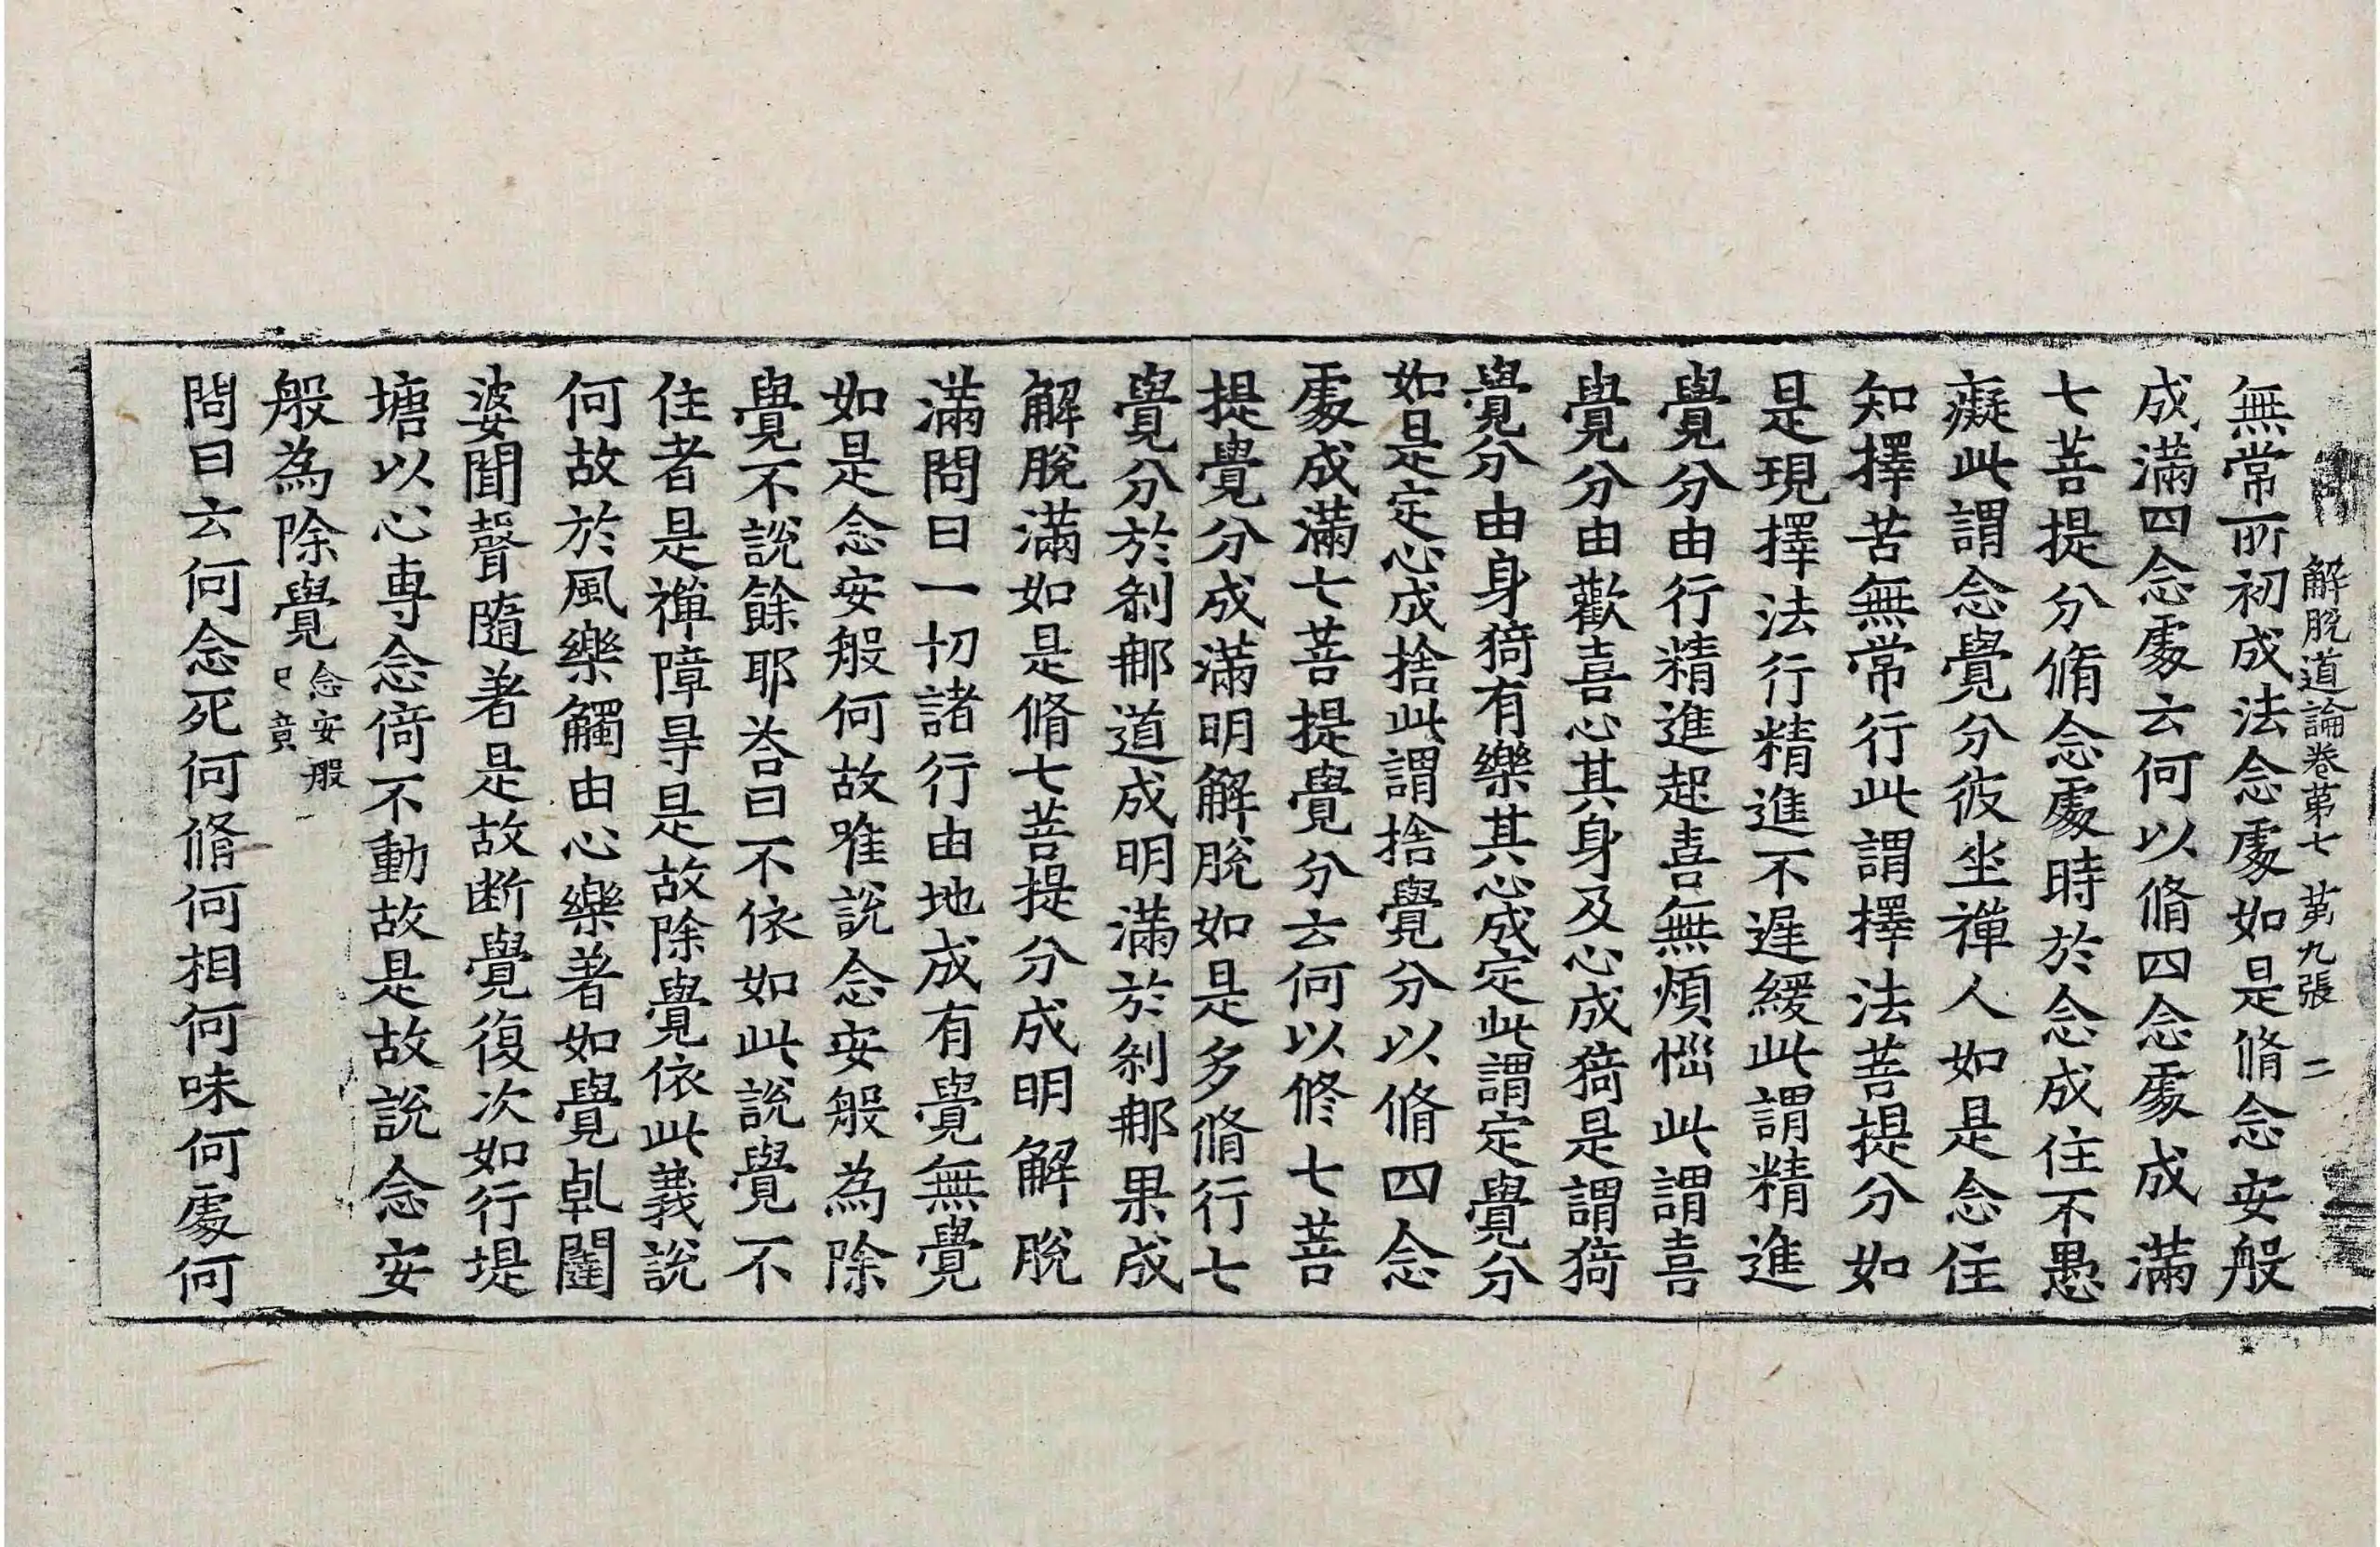 解脫道論卷第七 第九張 二
無常所初成法念處如是脩念安般
成滿四念處云何以脩四念處成滿
七菩提分脩念處時於念成住不愚
癡此謂念覺分彼坐禪人如是念住
知擇苦無常行此謂擇法菩提分如
是現擇法行精進不遲緩此謂精進
覺分由行精進起喜無煩惱此謂喜
覺分由歡喜心其身及心成猗是謂猗
覺分由身猗有樂其心成定此謂定覺分
如是定心成捨此謂捨覺分以脩四念
處成滿七菩提覺分云何以修七菩
提覺分成滿明解脫如是多脩行七
覺分於剎那道成明滿於剎那果成
解脫滿如是脩七菩提分成明解脫
滿問曰一切諸行由地成有覺無覺
如是念安般何故唯說念安般為除
覺不說餘耶荅曰不依如此說覺不
住者是禪障㝵是故除覺依此義說
何故於風樂觸由心樂著如覺乹闥
婆聞聲隨著是故断覺復次如行堤
塘以心專念倚不動故是故說念安
般為除覺念安般已竟
問曰云何念死何脩何相何味何處何